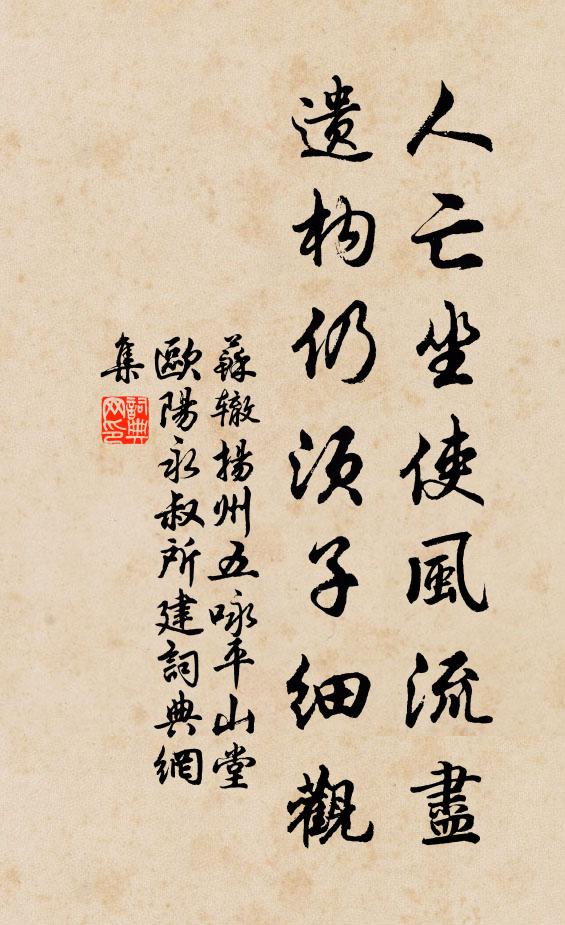 人亡坐使風流盡
遺构仍須子細觀
蘇辙揚州五咏平山堂
歐陽永叔所建詞典網
集
詞典
网印